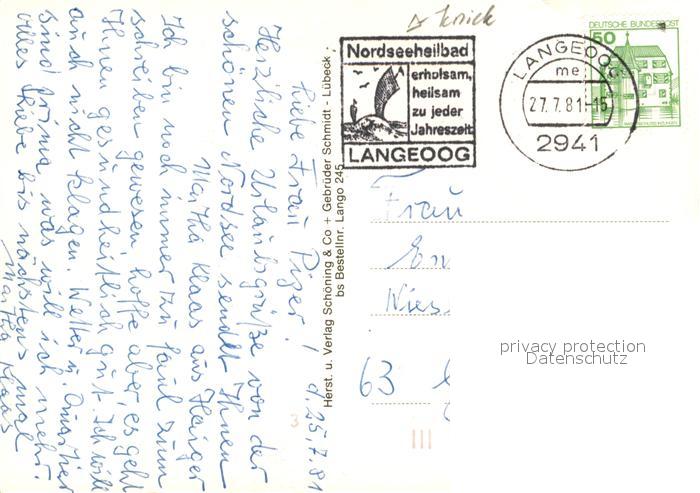 Liebe Frau Pizer! d. 25.7.81
Herzliche Urlaubsgrüße von der
schönen Nordsee sendet Ihnen
Martha Klaas aus Haiger
Ich bin noch immer zu faul zum
schreiben gewesen hoffe aber, es geht
Ihnen gesundheitlich gut. Ich will
auch nicht klagen. Wetter u.
sind prima was will ich mehr.
alles Liebe bis nächstens mal
Martha Klaas
Herst. u. Verlag Schöning & Co + Gebrüder Schmidt - Lübeck
bs Bestellnr. Lango 245
Nordseeheilbad
erholsam,
heilsam
zu jeder
Jahreszeit
LANGEOOG
LANGEOOG
me
27.7.81-15
2941
DEUTSCHE BUNDESPOST
50
Frau
63
privacy protection
Datenschutz